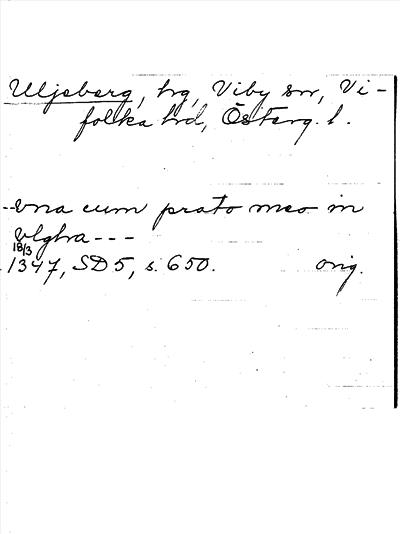 Uljeberg, hg, Viby sn, Vi-
folka hd, Österg. l.
--vna cum prato meo in
vlghra ---
18/3
1347, SD 5, s. 650. orig.